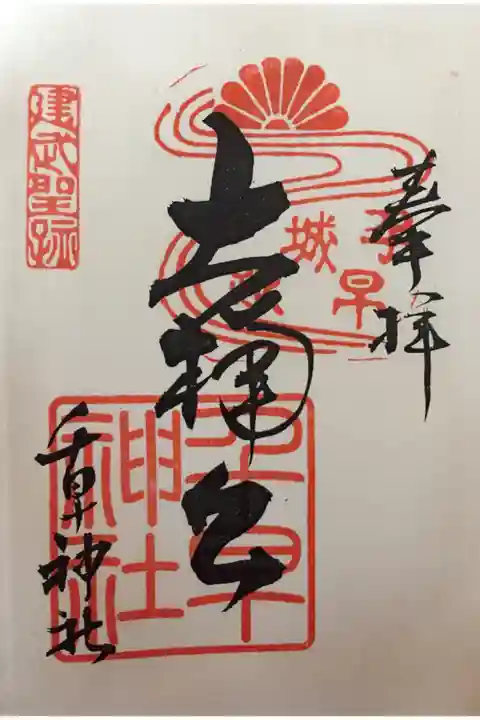 奉拝
早
城
大楠公
千早神社
千早神社
建武聖跡